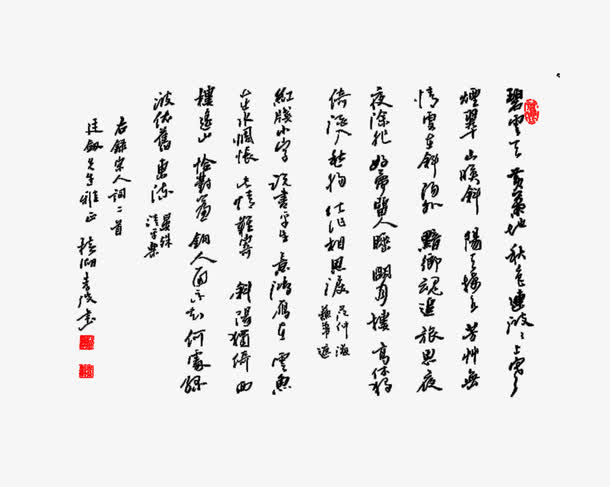 碧雲天 黃葉地 秋色連波〻上寒
煙翠 山映斜陽天接水 芳艸無
情 更在斜陽外 黯鄉魂 追旅思 夜
夜除非 好夢留人睡 明月樓高休獨
倚 酒入愁腸 化作相思淚
范仲淹
蘇幕遮
紅牋小字 說盡平生意 鴻雁在雲魚
在水 惆悵此情難寄 斜陽獨倚西
樓 遙山恰對簾鉤 人面不知何處 綠
波依舊東流
晏殊
清平樂
右錄宋人詞二首
先生雅正
書